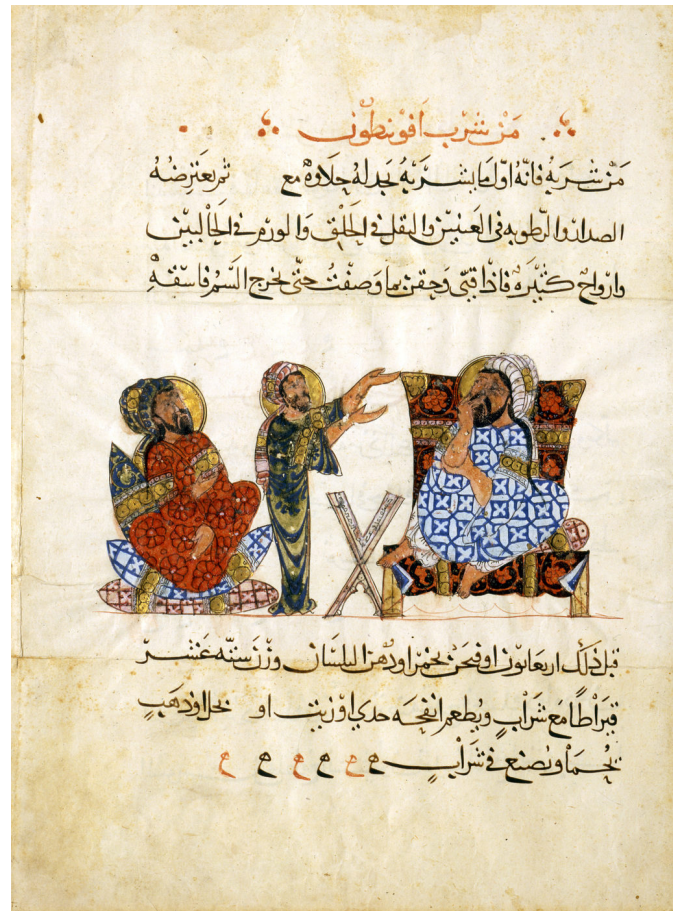 مَنْ شرب اَفوْنيطوُن
مَنْ شَربَهُ فانّهُ اوّل مَا يشَربَهُ يَجد لهُ حلاوهْ مع ثم يعترضهُ
الصداع والرّطوبه في العَينيَن والثقل في الحَلْق وَالورَم في الحَالبيَن
وارواحٌ كثيَرهٌ فاذا قيّى وَحقن بما وَصَفتُ حتّى يخرج السّمُ فاسْقهُ
قبل ذلك اوْ دُهن البلسَان وَزْن ستّه عَشَر
قيرَاطًا مَع شَرابٍ ويُطعم انفحَه جدي اوْ زيت او بخل
ويصنع في شَرَابٍ